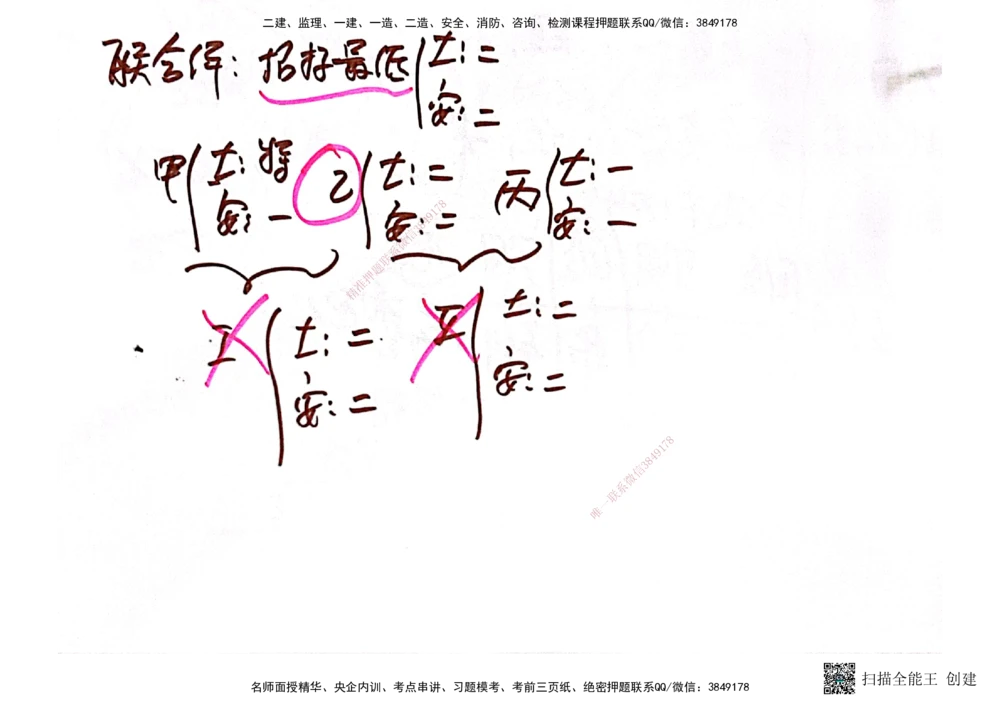 二建、监理、一建、一造、二造、安全、消防、咨询、检测课程押题联系QQ/微信：3849178
联合体：招标最低 土：二
安：二
甲 土：特 乙 土：二 丙 土：一
安：一 安：二 安：一
精准押题联系微信3849178
I 土：二 II 土：二
安：二 安：二
唯一联系微信3849178
名师面授精华、央企内训、考点串讲、习题模考、考前三页纸、绝密押题联系QQ/微信：3849178
扫描全能王 创建